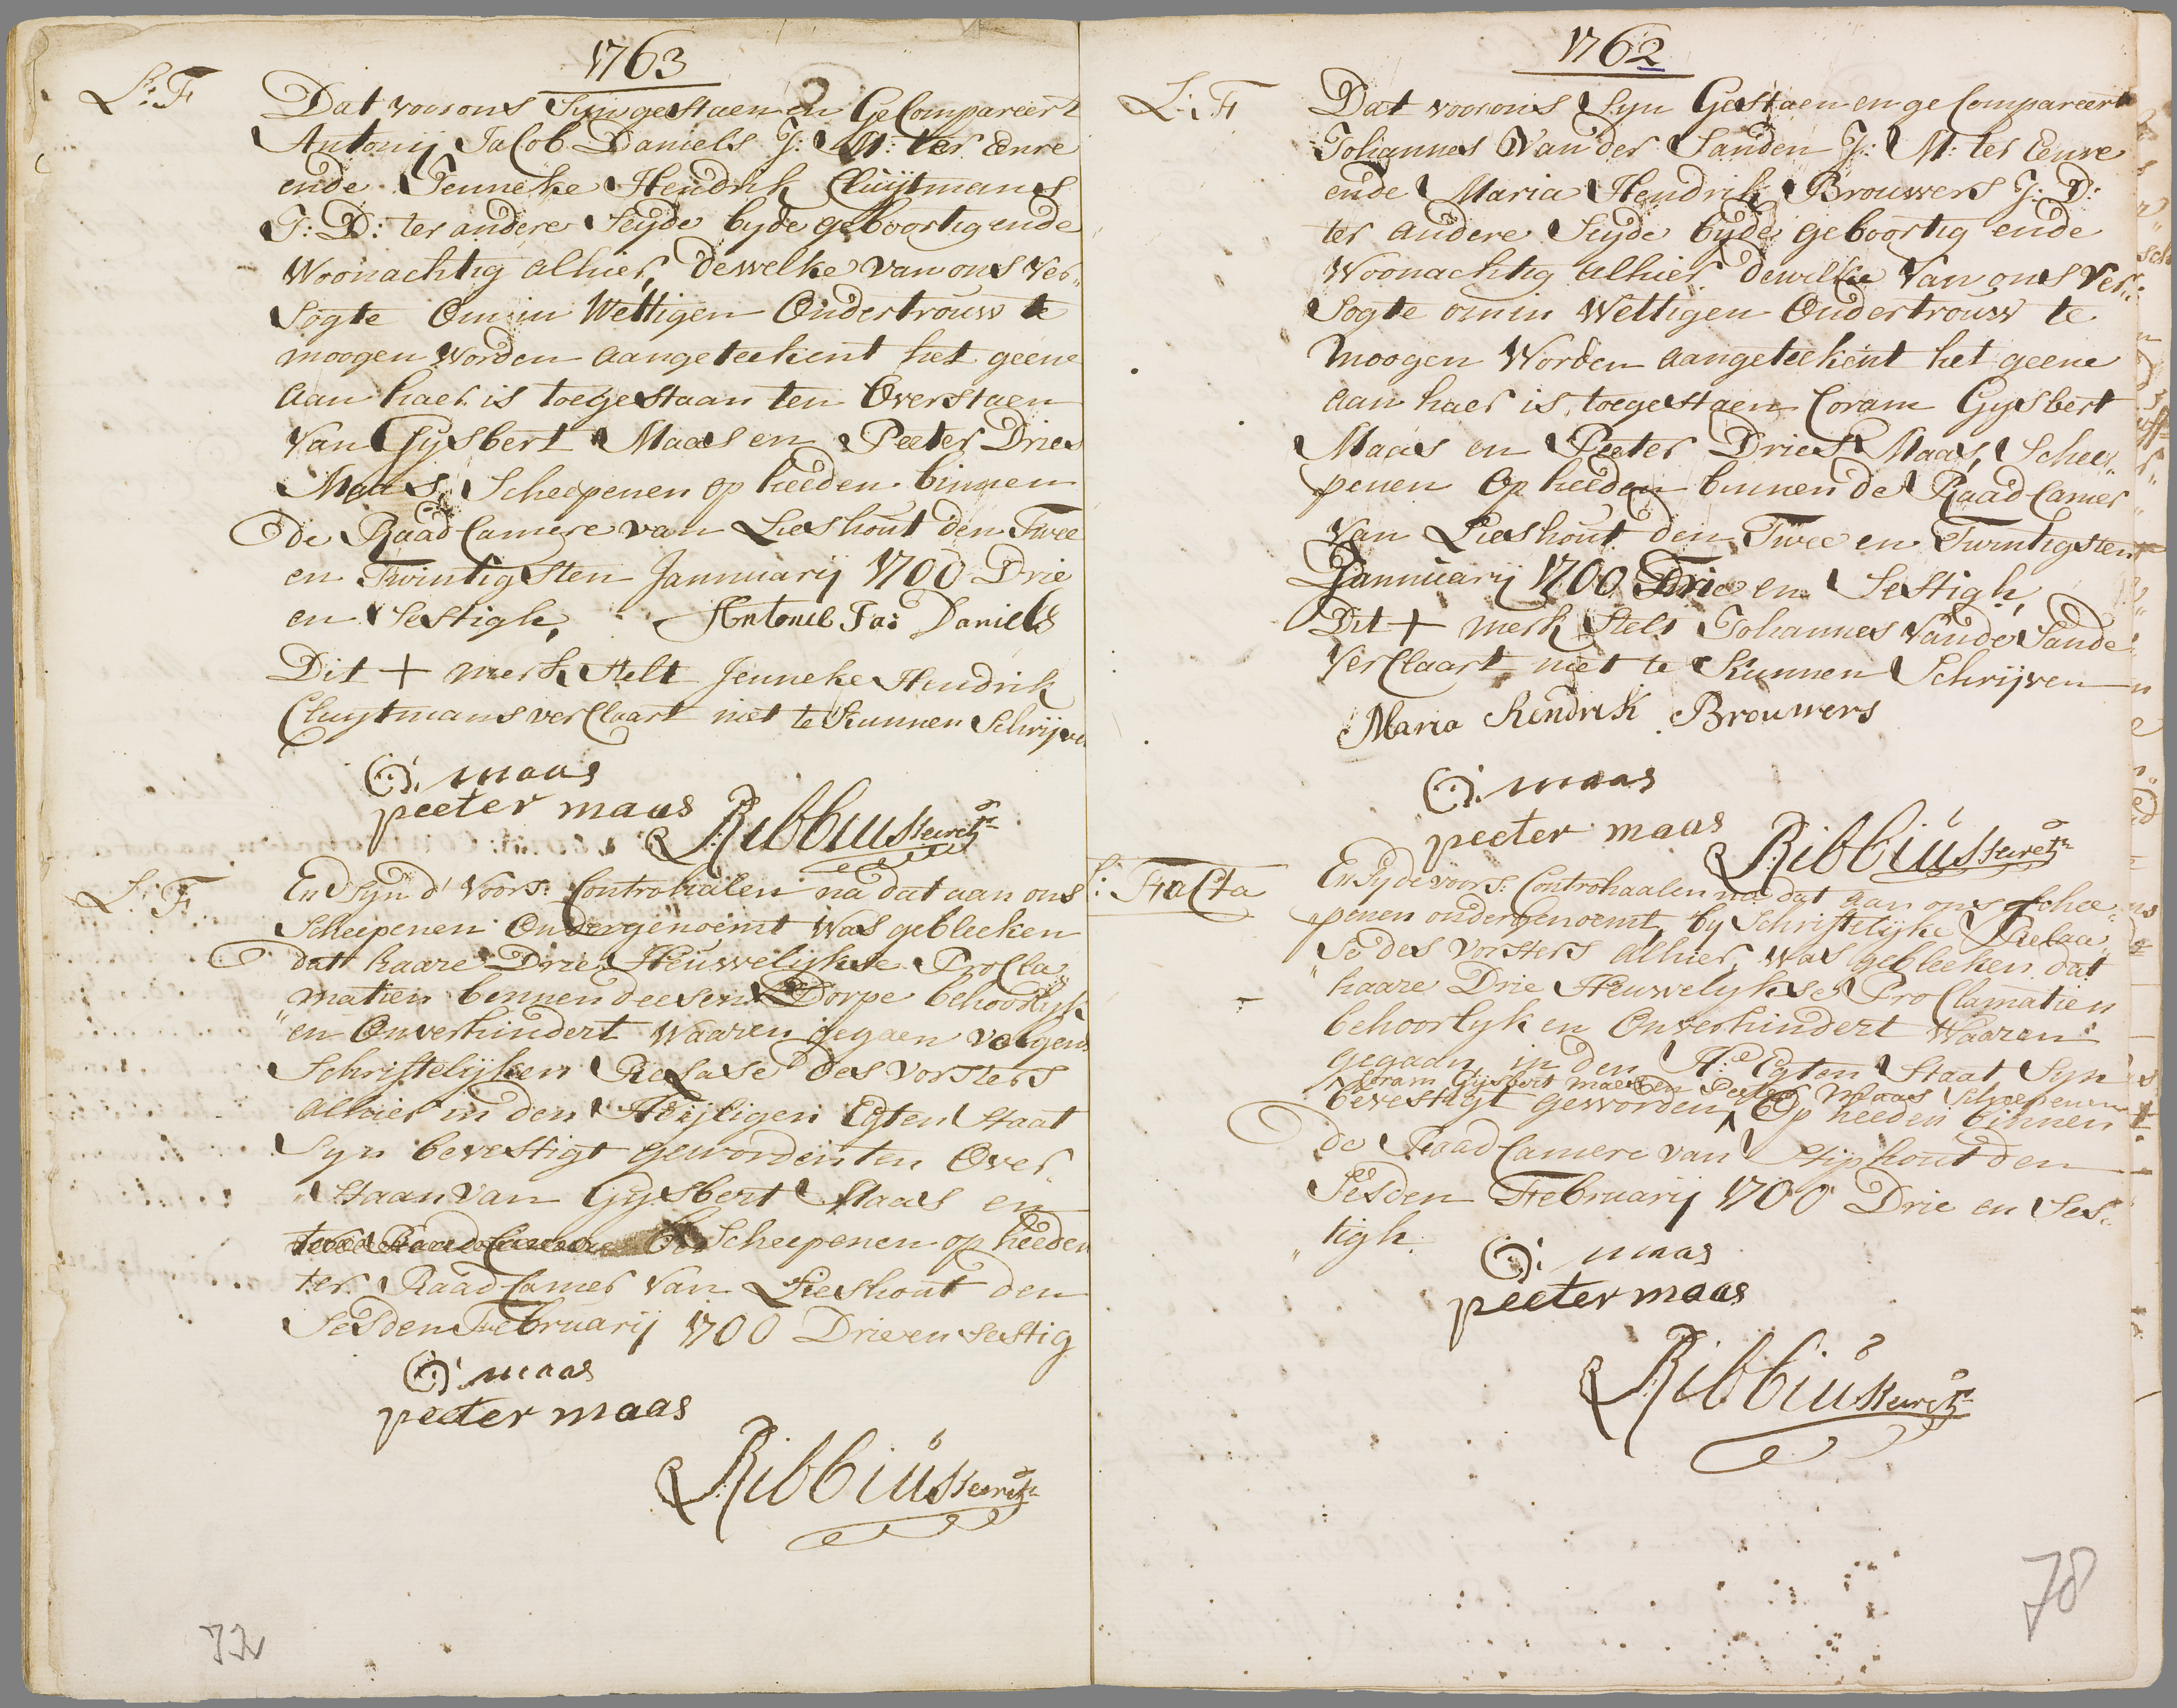 1763
L: F
Dat voor ons Syn gestaen en GeCompareert
Antonij Jacob Daniels J: M: ter Eenre
ende Jenneke Hendrik Cluijtmans
J: D: ter andere Seyde byde geboortig ende
Woonachtig alhier, dewelke van ons Ver„
Sogte Om in Wettigen Ondertrouw te
moogen Worden aangeteekent het geene
aan haer is toegestaan ten Overstaen
Van Gysbert Maas en Peeter Dries
Maas, Scheepenen op heeden binnen
de Raad Camere van Lieshout den Twee
en Twintigsten Jannuarij 1700 Drie
en Sestigh, Antonie Ja: Daniels
Dit + merk stelt Jenneke Hendrik
Cluytmans verClaart niet te Kunnen Schrijven
G: maas
peeter maas
Ribbius secrets
L: F
En Syn d' Voors: Controhalen na dat aan ons
Scheepenen Ondergenoemt Was gebleeken
dat haare Drie Heuwelijkse ProCla„
„matien binnen deesen Dorpe behoorlijk
en Onverhindert Waaren gegaen volgens
Schriftelijken Relase des vorsters
alhier in den Heijligen Egten Staat
Syn bevestigt geworden ten Over
„Staan van Gysbert Maas en
Scheepenen op heeden
ter Raad Camer van Lieshout den
Sesden Februarij 1700 Drie en sestig
G: maas
peeter maas
Ribbius secrets
72
1762
L: F
Dat voor ons Syn Gestaen en geCompareert
Johannes Van der Sanden J: M: ter Eenre
ende Maria Hendrik Brouwers J: D:
ter andere Seyde byde geboortig ende
Woonachtig alhier dewelke Van ons Ver„
Sogte om in Wettigen Ondertrouw te
moogen Worden aangeteekent het geene
aan haer is toegestaen Coram Gysbert
Maas en Peeter Dries Maas, Schee„
penen Op heeden binnen de Raad Camer
Van Lieshout den Twee en Twintigsten
Jannuarij 1700 Drie en Sestigh,
Dit + merk Stelt Johannes Van de Sande
VerClaart niet te Kunnen Schrijven
Maria Hendrik Brouwers
G: maas
peeter maas
Ribbius secrets
L: Facta
En Sy de voors: Controhaalen na dat aan ons schee„
„penen ondergenoemt, by Schriftelijke Relaa„
se des Vorsters alhier, was gebleeken dat
„haare Drie Heuwelykse ProClamatien
behoorlyk en Onverhindert Waaren
gegaan, in den H:e Egten Staat Syn
Coram Gijsbert maas en Peeter Maas Schepenen
bevestigt geworden, Op heeden binnen
de Raad Camere van Stiphout den
Sesden Februarij 1700 Drie en Ses„
„tigh.
G: maas
peeter maas
Ribbius secrets
78